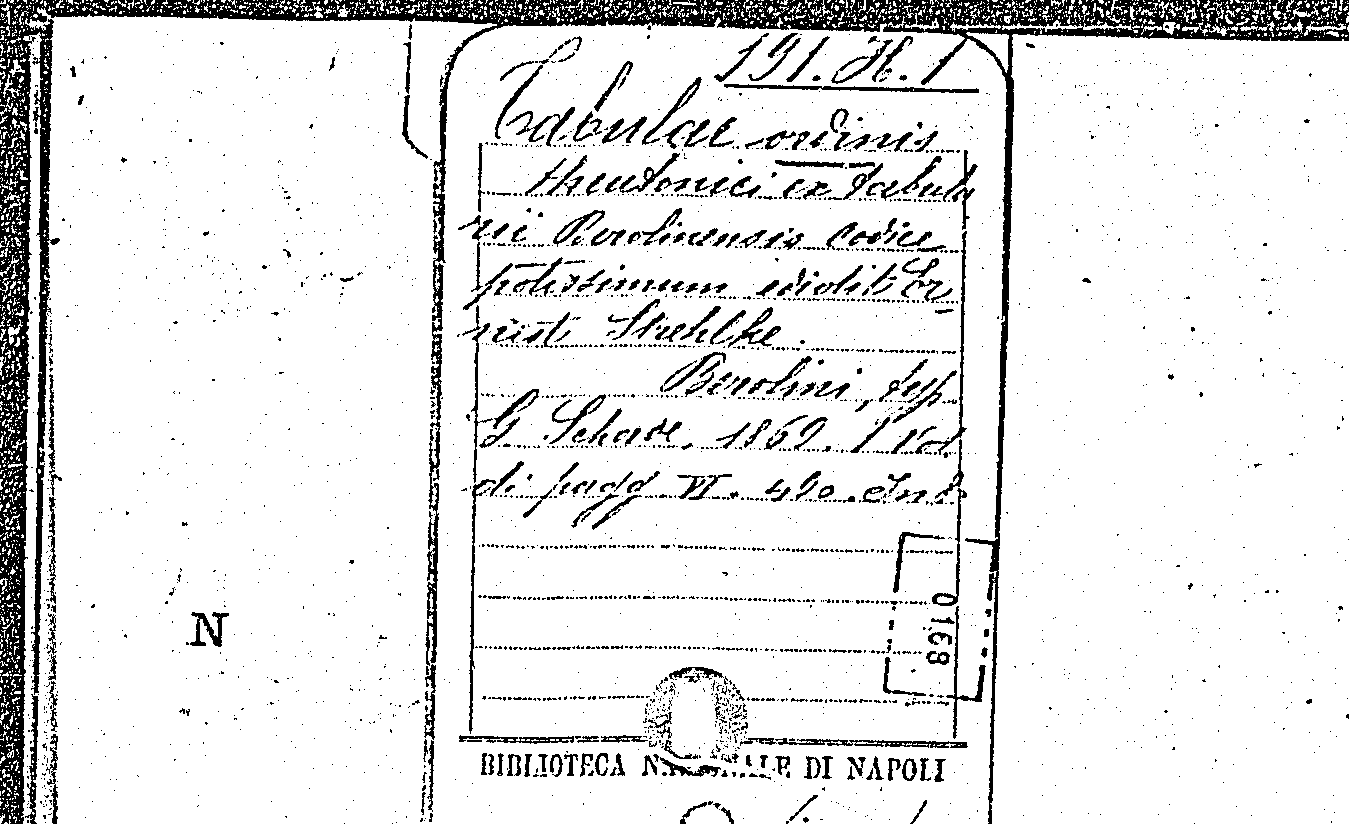 191. H. 1
Tabulae ordinis
theutonici ex tabula
rii Berolinensis codice
potissimum edidit Er-
nesti Strehlke.
Berolini, typ.
G. Schade, 1869. 1 vol.
di pagg. VI. 490. In 8.
0168
N
BIBLIOTECA NAZIONALE DI NAPOLI